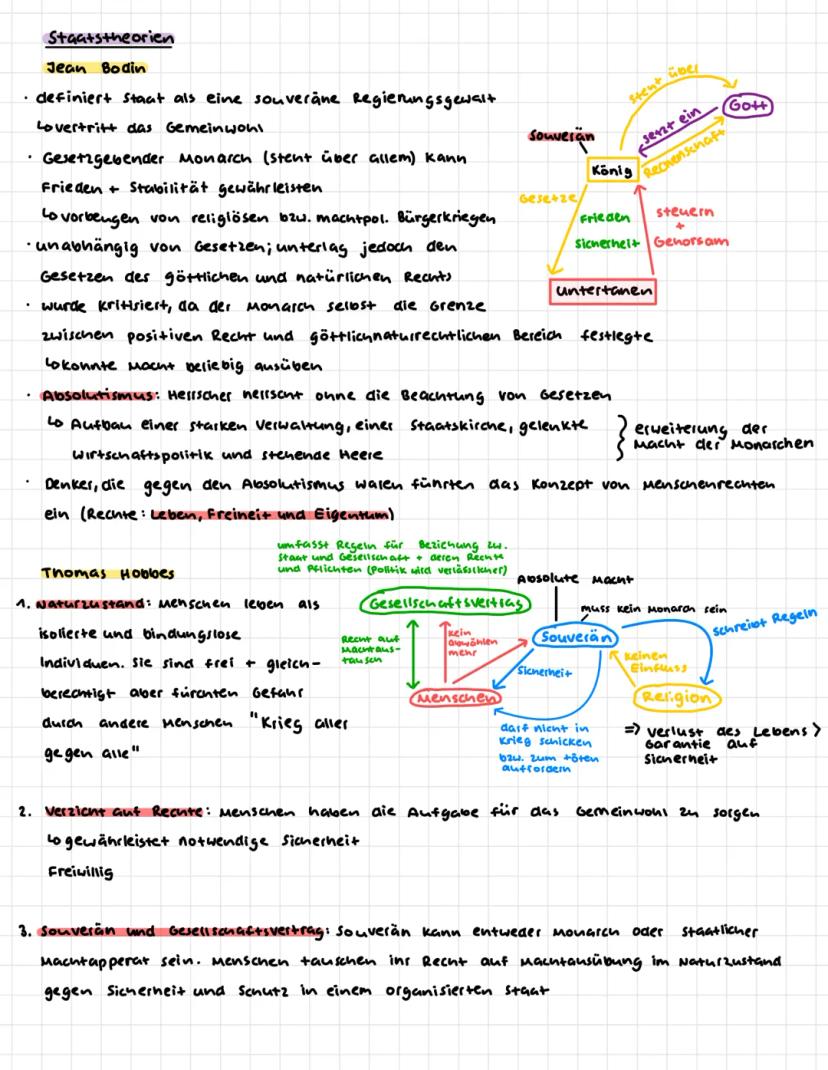 Staatstheorien
Jean Bodin
· definiert Staat als eine souveräne Regierungsgewalt
↳ vertritt das Gemeinwohl
· Gesetzgebender Monarch (steht über allem) kann
Frieden + Stabilität gewährleisten
↳ vorbeugen von religiösen bzw. machtpol. Bürgerkriegen
· unabhängig von Gesetzen; unterlag jedoch den
Gesetzen des göttlichen und natürlichen Rechts
· wurde kritisiert, da der Monarch selbst die Grenze
zwischen positiven Recht und göttlichnaturrechtlichen Bereich festlegte
↳ konnte Macht beliebig ausüben
steht über
Gott
setzt ein
Rechenschaft
Souverän
König
Gesetze
Frieden
Sicherheit
steuern
+
Gehorsam
Untertanen
· Absolutismus: Herrscher herrscht ohne die Beachtung von Gesetzen
↳ Aufbau einer starken Verwaltung, einer Staatskirche, gelenkte
Wirtschaftspolitik und stehende Heere
} erweiterung der
Macht der Monarchen
· Denker, die gegen den Absolutismus waren führten das Konzept von Menschenrechten
ein (Rechte: Leben, Freiheit und Eigentum)
Thomas Hobbes
1. Naturzustand: Menschen leben als
isolierte und bindungslose
Individuen. Sie sind frei + gleich-
berechtigt aber fürchten Gefahr
durch andere Menschen "Krieg aller
gegen alle"
umfasst Regeln für Beziehung zw.
Staat und Gesellschaft + deren Rechte
und Pflichten (Politik wird verlässlicher)
Gesellschaftsvertrag
Absolute Macht
muss kein Monarch sein
Souverän
schreibt Regeln
Recht auf
Machtaus-
tauschen
kein
abwählen
mehr
Sicherheit
keinen
Einfluss
Menschen
Religion
darf nicht in
Krieg schicken
bzw. zum töten
auffordern
=> verlust des Lebens >
Garantie auf
Sicherheit
2. Verzicht auf Rechte: Menschen haben die Aufgabe für das Gemeinwohl zu sorgen
↳ gewährleistet notwendige Sicherheit
Freiwillig
3. Souverän und Gesellschaftsvertrag: Souverän kann entweder Monarch oder staatlicher
Machtapperat sein. Menschen tauschen ihr Recht auf Machtausübung im Naturzustand
gegen Sicherheit und Schutz in einem organisierten Staat